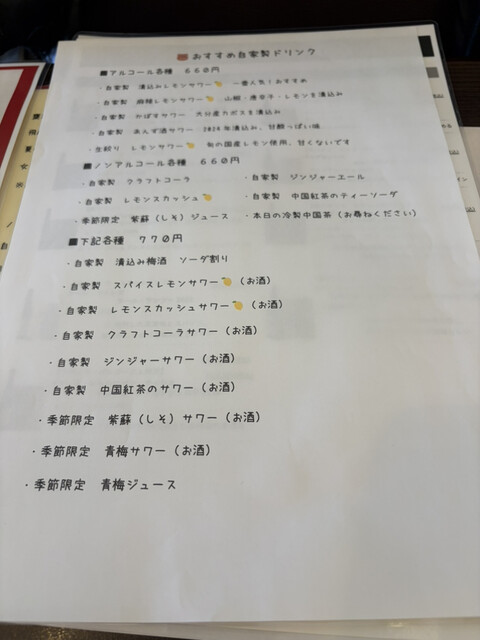 🐻おすすめ自家製ドリンク
■アルコール各種 660円
・自家製 漬込みレモンサワー🍋 一番人気！おすすめ
・自家製 麻辣レモンサワー🍋 山椒・唐辛子・レモンを漬込み
・自家製 かぼすサワー 大分産カボスを漬込み
・自家製 あんず酒サワー 2024年漬込み、甘酸っぱい味
・生絞り レモンサワー🍋 旬の国産レモン使用、甘くないです
■ノンアルコール各種 660円
・自家製 クラフトコーラ ・自家製 ジンジャーエール
・自家製 レモンスカッシュ🍋 ・自家製 中国紅茶のティーソーダ
・季節限定 紫蘇（しそ）ジュース ・本日の冷製中国茶（お尋ねください）
■下記各種 770円
・自家製 漬込み梅酒 ソーダ割り
・自家製 スパイスレモンサワー🍋（お酒）
・自家製 レモンスカッシュサワー🍋（お酒）
・自家製 クラフトコーラサワー（お酒）
・自家製 ジンジャーサワー（お酒）
・自家製 中国紅茶のサワー（お酒）
・季節限定 紫蘇（しそ）サワー（お酒）
・季節限定 青梅サワー（お酒）
・季節限定 青梅ジュース